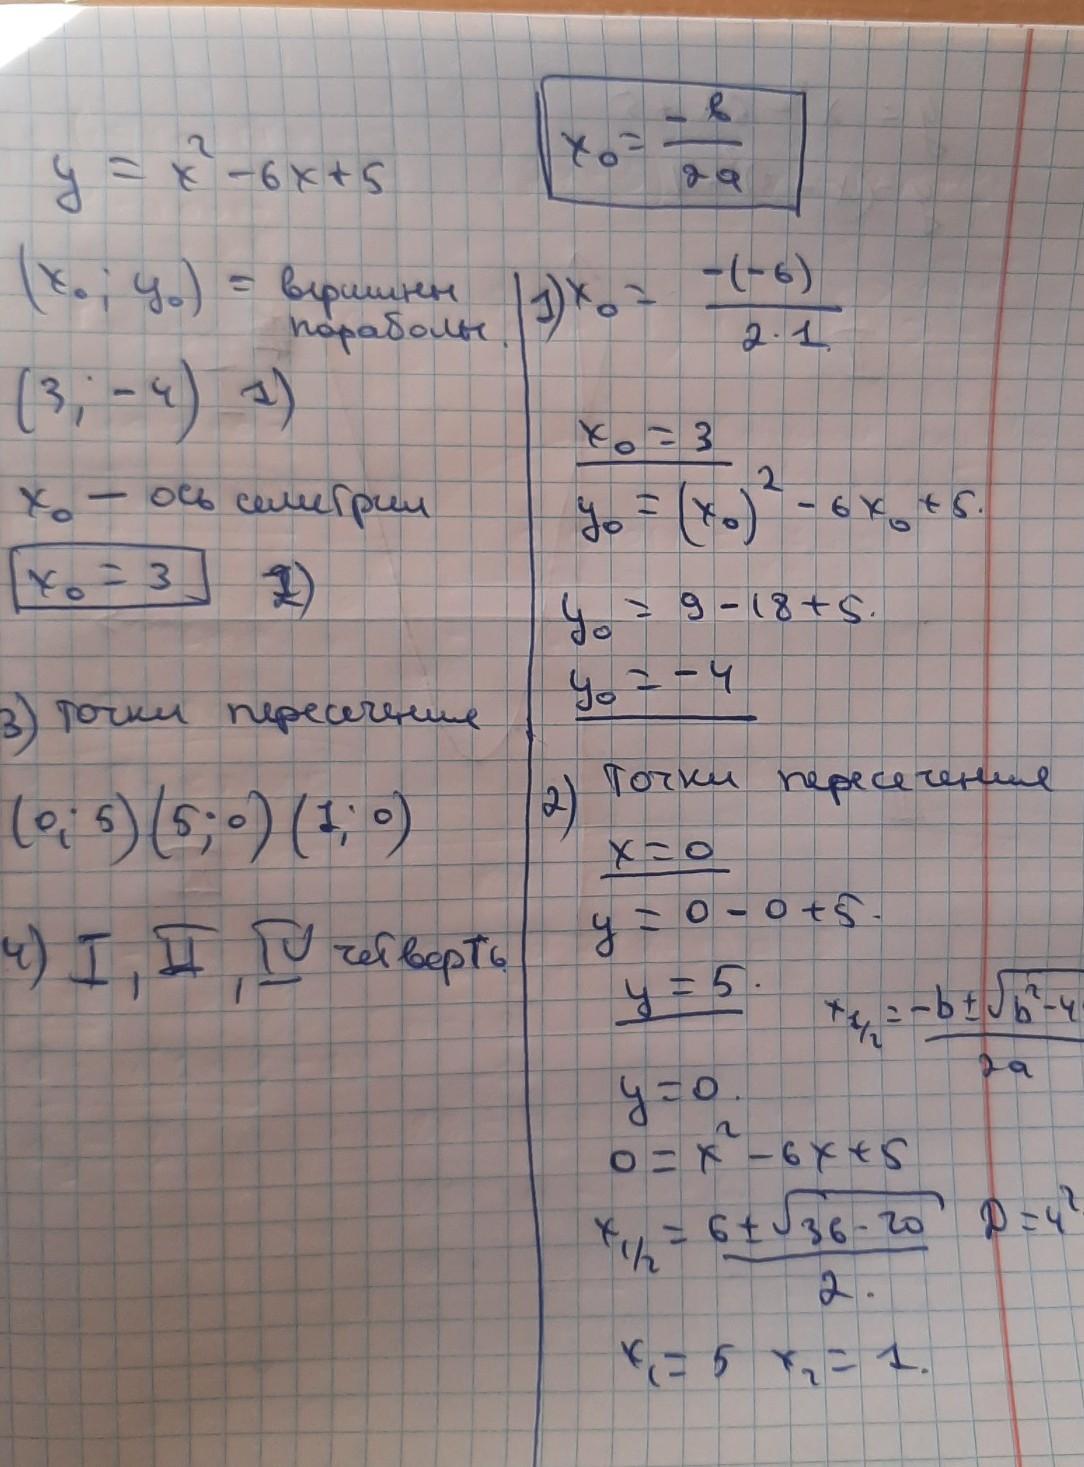 y = x² - 6x + 5
(x₀; y₀) = вершины
параболы.
(3; -4) 1)
x₀ — ось симетрии
x₀ = 3 2)
3) точки пересечение
(0; 5) (5; 0) (1; 0)
4) I, II, IV четверть
x₀ = -b/2a
1) x₀ = -(-6)/2·1
x₀ = 3
y₀ = (x₀)² - 6x₀ + 5.
y₀ = 9 - 18 + 5.
y₀ = -4
2) Точки пересечение
x = 0
y = 0 - 0 + 5.
y = 5.
x₁/₂ = -b ± √b² - 4/2a
y = 0.
0 = x² - 6x + 5
x₁/₂ = 6 ± √36 - 20/2. D = 4²
x₁ = 5 x₂ = 1.